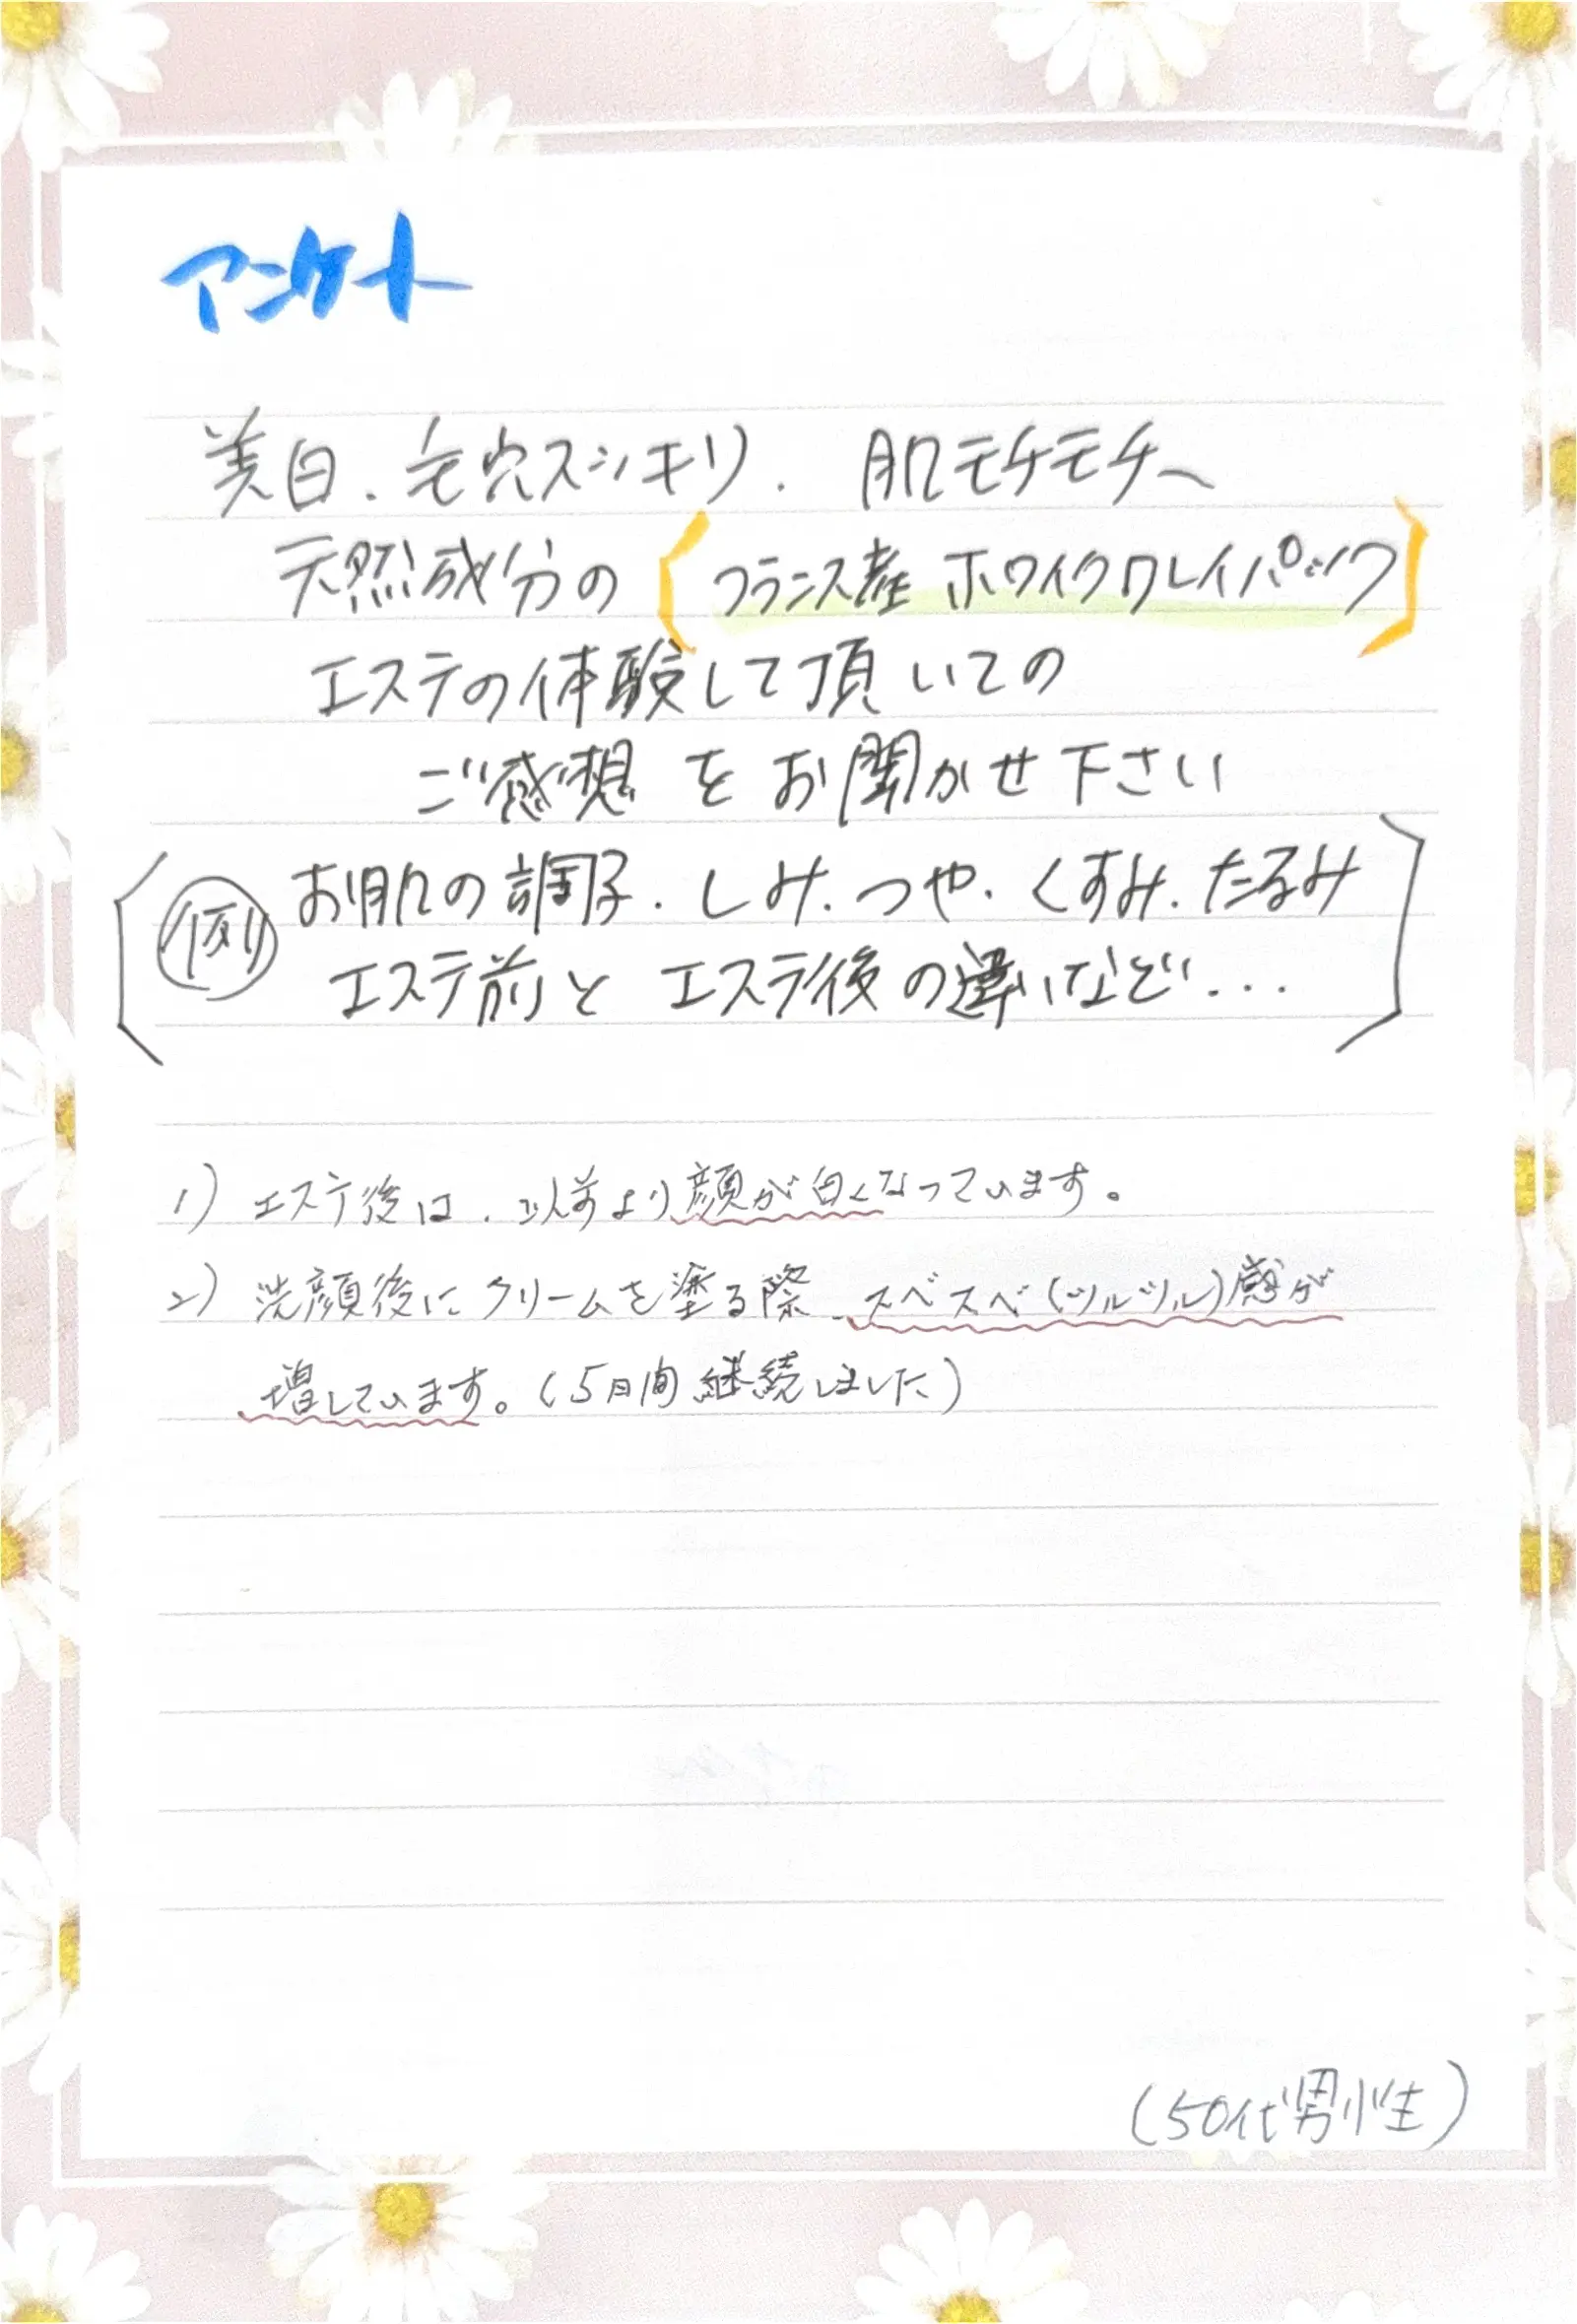 アンケート
美白.毛穴スッキリ.肌モチモチへ
天然成分の〔フランス産 ホワイククレイパック〕
エステの体験して頂いての
ご感想をお聞かせ下さい
例 お肌の調子.しみ.つや.くすみ.たるみ
エステ前とエステ後の違いなど...
1) エステ後は、以前より顔が白くなっています。
2) 洗顔後にクリームを塗る際、スベスベ(ツルツル)感が
増しています。(5日間継続しました)
(50代男性)